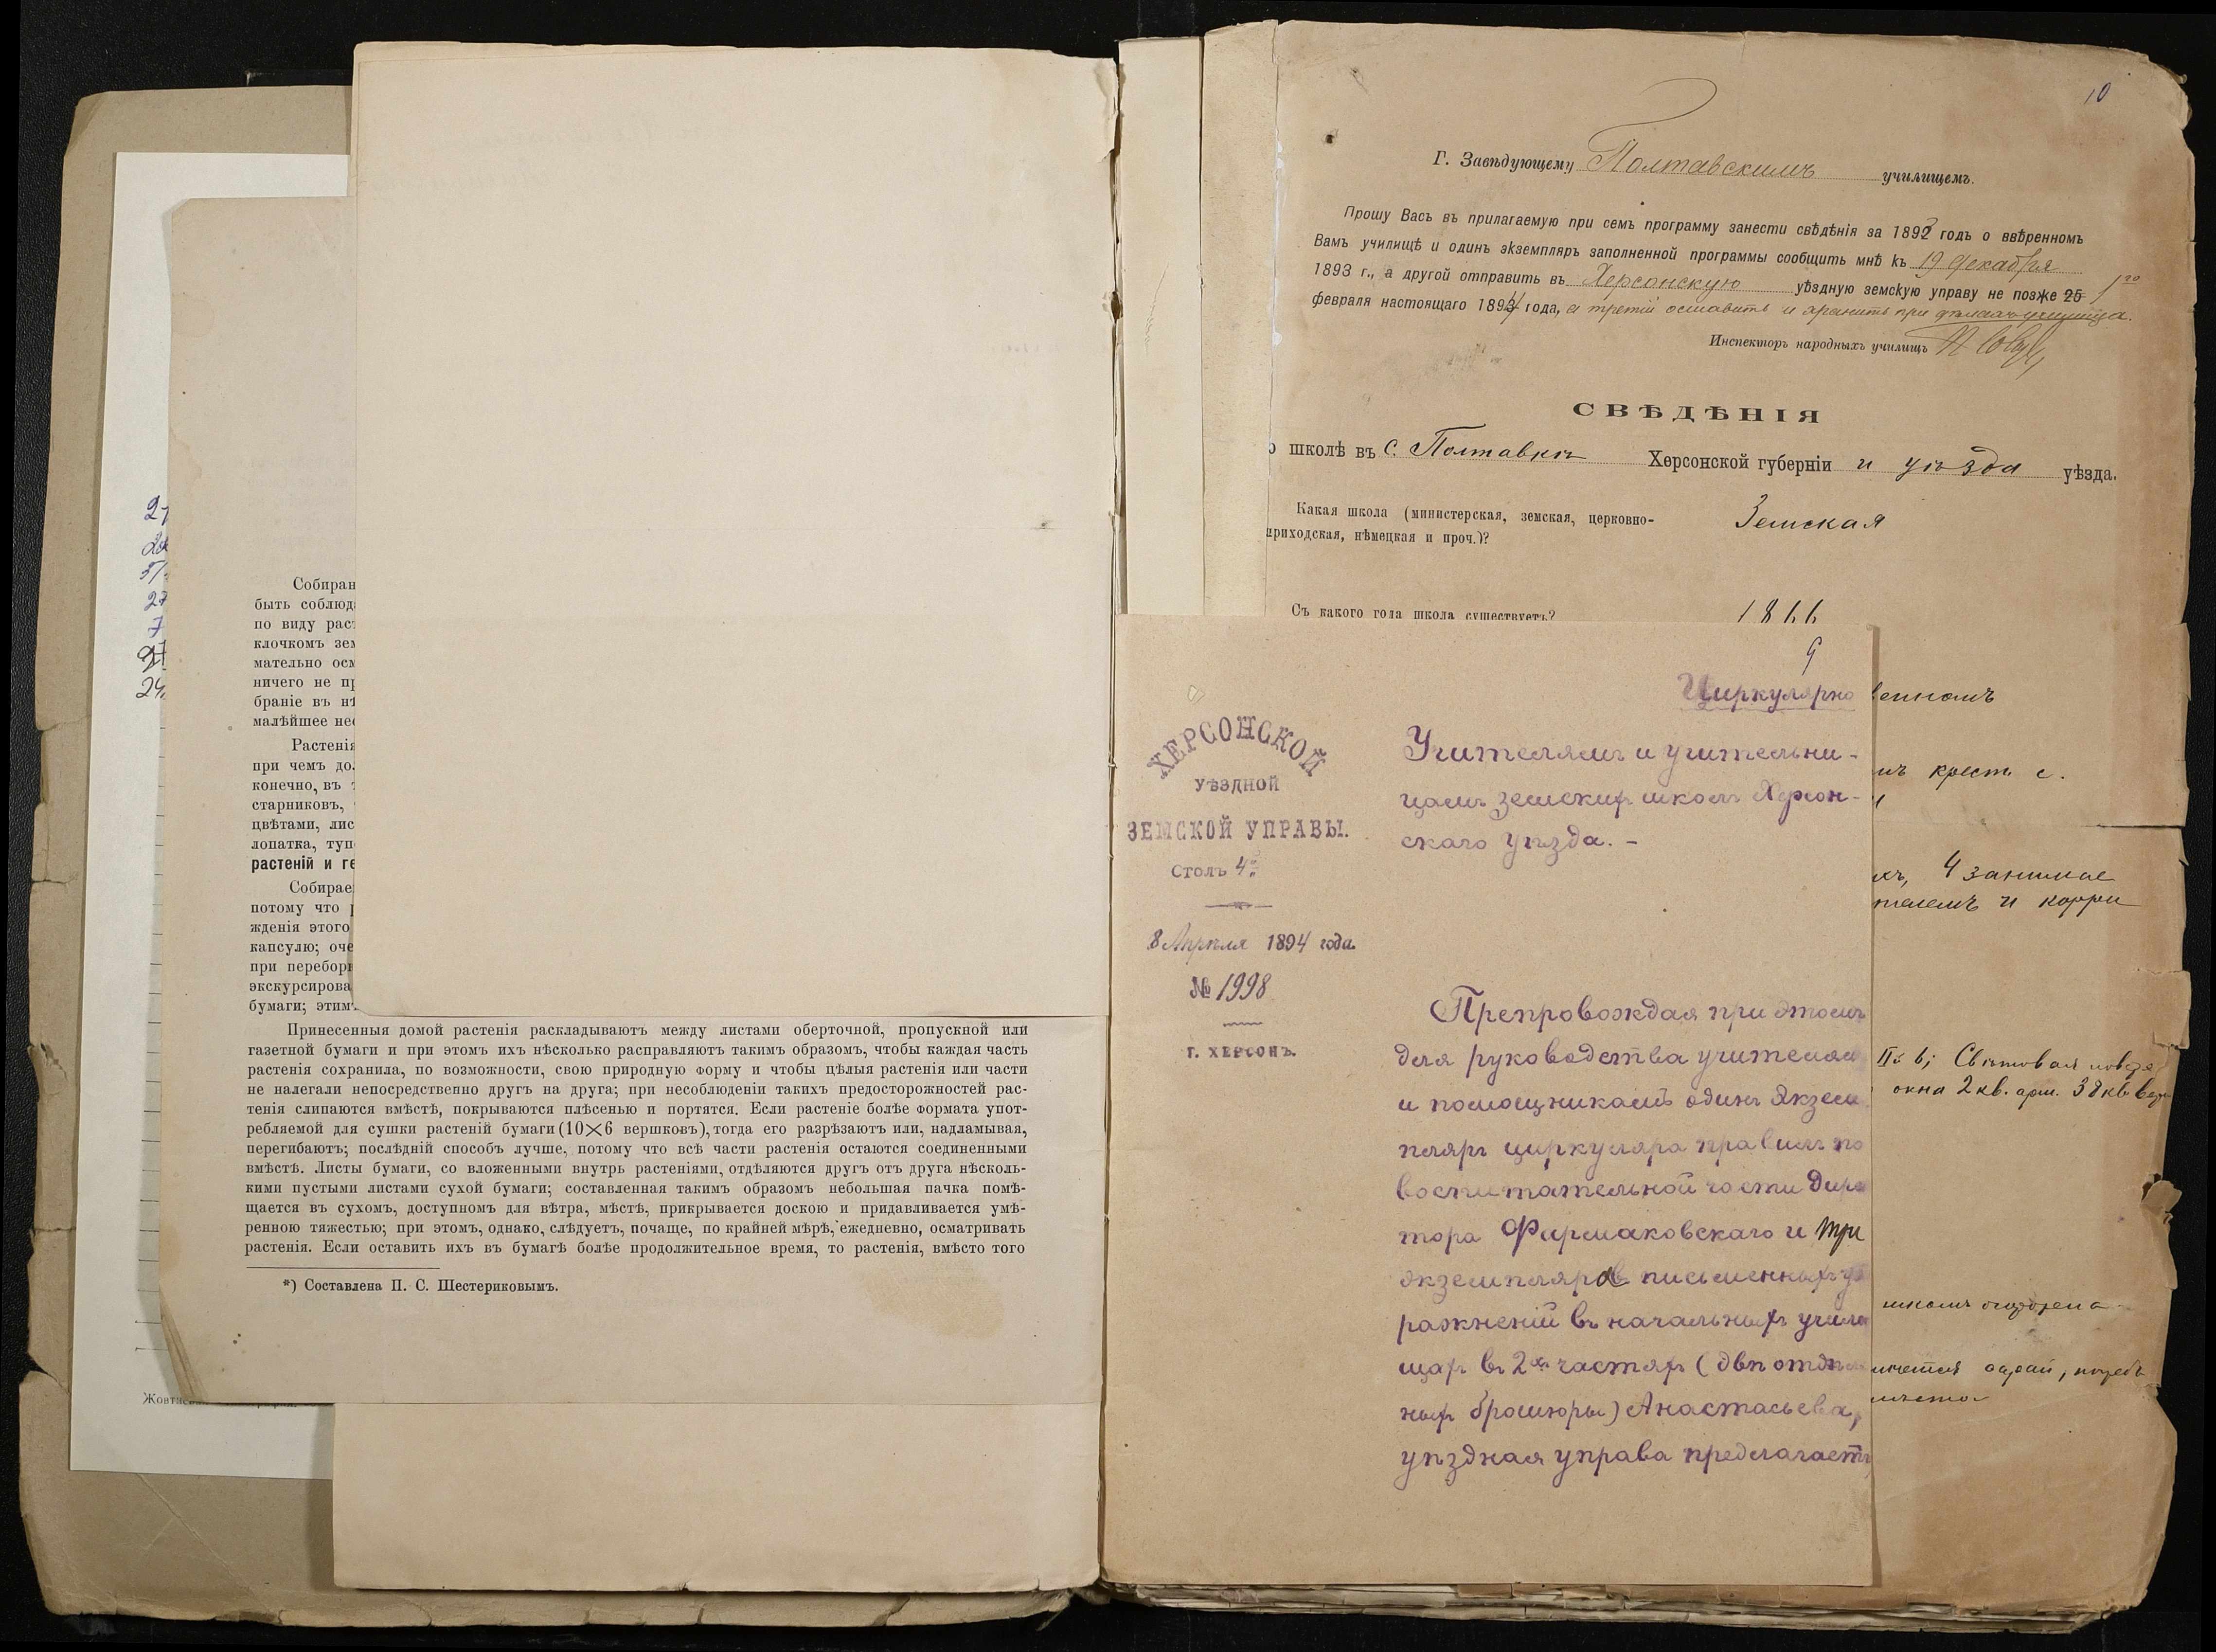 27
5/
27
7
24
Собиран
быть соблюд
по виду рас
клочкомъ зе
мательно осм
ничего не п
браніе въ н
малѣйшее не
Растенія
при чемъ до
конечно, въ
старниковъ,
цвѣтами, лис
лопатка, туп
растеній и ге
Собирае
потому что
жденія этого
капсулю; оче
при перебор
экскурсирова
бумаги; этим
Принесенныя домой растенія раскладываютъ между листами оберточной, пропускной или
газетной бумаги и при этомъ ихъ нѣсколько расправляютъ такимъ образомъ, чтобы каждая часть
растенія сохранила, по возможности, свою природную форму и чтобы цѣлыя растенія или части
не налегали непосредственно другъ на друга; при несоблюденіи такихъ предосторожностей рас-
тенія слипаются вмѣстѣ, покрываются плѣсенью и портятся. Если растеніе болѣе формата упот-
ребляемой для сушки растеній бумаги (10×6 вершковъ), тогда его разрѣзаютъ или, надламывая,
перегибаютъ; послѣдній способъ лучше, потому что всѣ части растенія остаются соединенными
вмѣстѣ. Листы бумаги, со вложенными внутрь растеніями, отдѣляются другъ отъ друга нѣсколь-
кими пустыми листами сухой бумаги; составленная такимъ образомъ небольшая пачка помѣ-
щается въ сухомъ, доступномъ для вѣтра, мѣстѣ, прикрывается доскою и придавливается умѣ-
ренною тяжестью; при этомъ, однако, слѣдуетъ, почаще, по крайней мѣрѣ, ежедневно, осматривать
растенія. Если оставить ихъ въ бумагѣ болѣе продолжительное время, то растенія, вмѣсто того
*) Составлена П. С. Шестериковымъ.
Жовт
10
Г. Завѣдующему Полтавскимъ училищемъ.
Прошу Васъ въ прилагаемую при семъ программу занести свѣдѣнія за 1893 годъ о ввѣренномъ
Вамъ училищѣ и одинъ экземпляръ заполненной программы сообщить мнѣ къ 19 декабря
1893 г., а другой отправить въ Херсонскую уѣздную земскую управу не позже 25 1го
февраля настоящаго 1894 года, а третій оставить и хранить при дѣлахъ училища.
Инспекторъ народныхъ училищъ
СВѢДѢНІЯ
о школѣ въ с. Полтавкѣ Херсонской губерніи и уѣзда уѣзда.
Какая школа (министерская, земская, церковно-
приходская, нѣмецкая и проч.)?
Земская
Съ какого года школа существуетъ?
1866
9
Циркулярно
ХЕРСОНСКОЙ
УѢЗДНОЙ
ЗЕМСКОЙ УПРАВЫ.
Столъ 4й
8 Апрѣля 1894 года.
№ 1998
Г. ХЕРСОНЪ.
Учителямъ и учительни-
цамъ земскихъ школъ Херсон-
скаго уѣзда. -
Препровождая при этомъ
для руководства учителям
и помощникамъ одинъ экзем
пляръ циркуляра правилъ по
воспитательной части Дире
тора Фармаковскаго и три
экземпляра письменныхъ уп
ражненій въ начальныхъ учили
щахъ въ 2хъ частяхъ (двѣ отдѣл
ныхъ брошюры) Анастасьева,
уѣздная управа предлагаетъ
венномъ
мъ крест с.
хъ, 4 занимае
телемъ и корри
Свѣтовая
окна 2 кв. арш. 38 кв. вер
сарай, погребъ
мѣсто